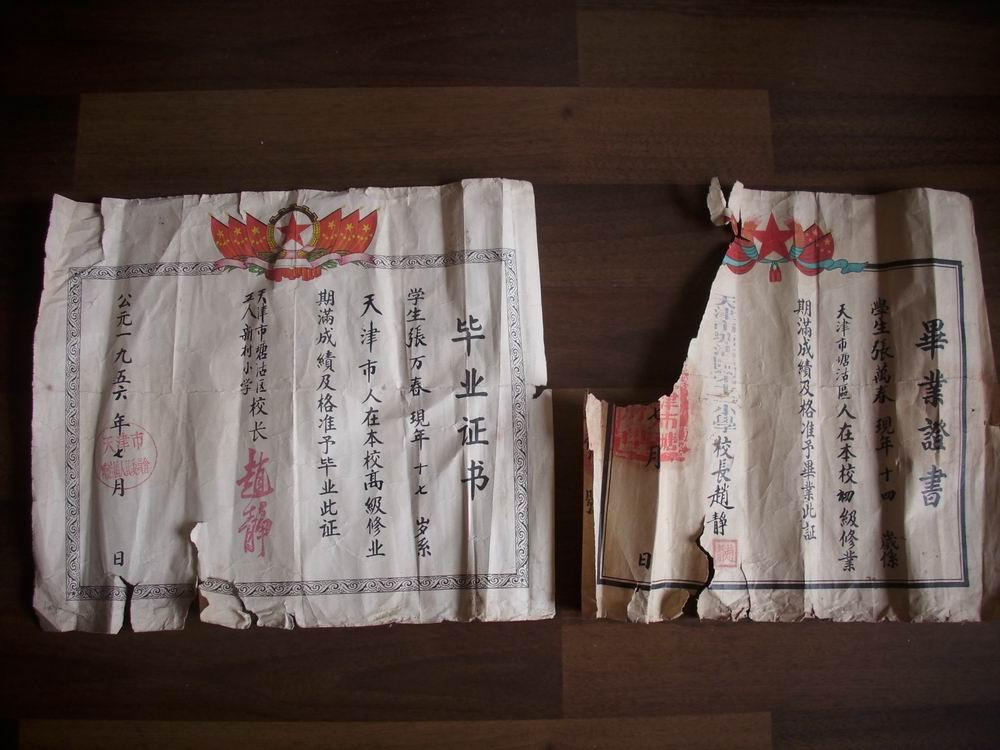 毕业证书
学生張万春 现年十七 岁系
天津市人在本校高級修业
期滿成績及格准予毕业此证
天津市塘沽区
工人新村小学
校长
趙靜
公元一九五六年七月 日
天津市
畢業證書
學生張萬春 現年十四 歲係
天津市塘沽區人在本校初級修業
期滿成績及格准予畢業此証
小學校長趙靜
七月 日